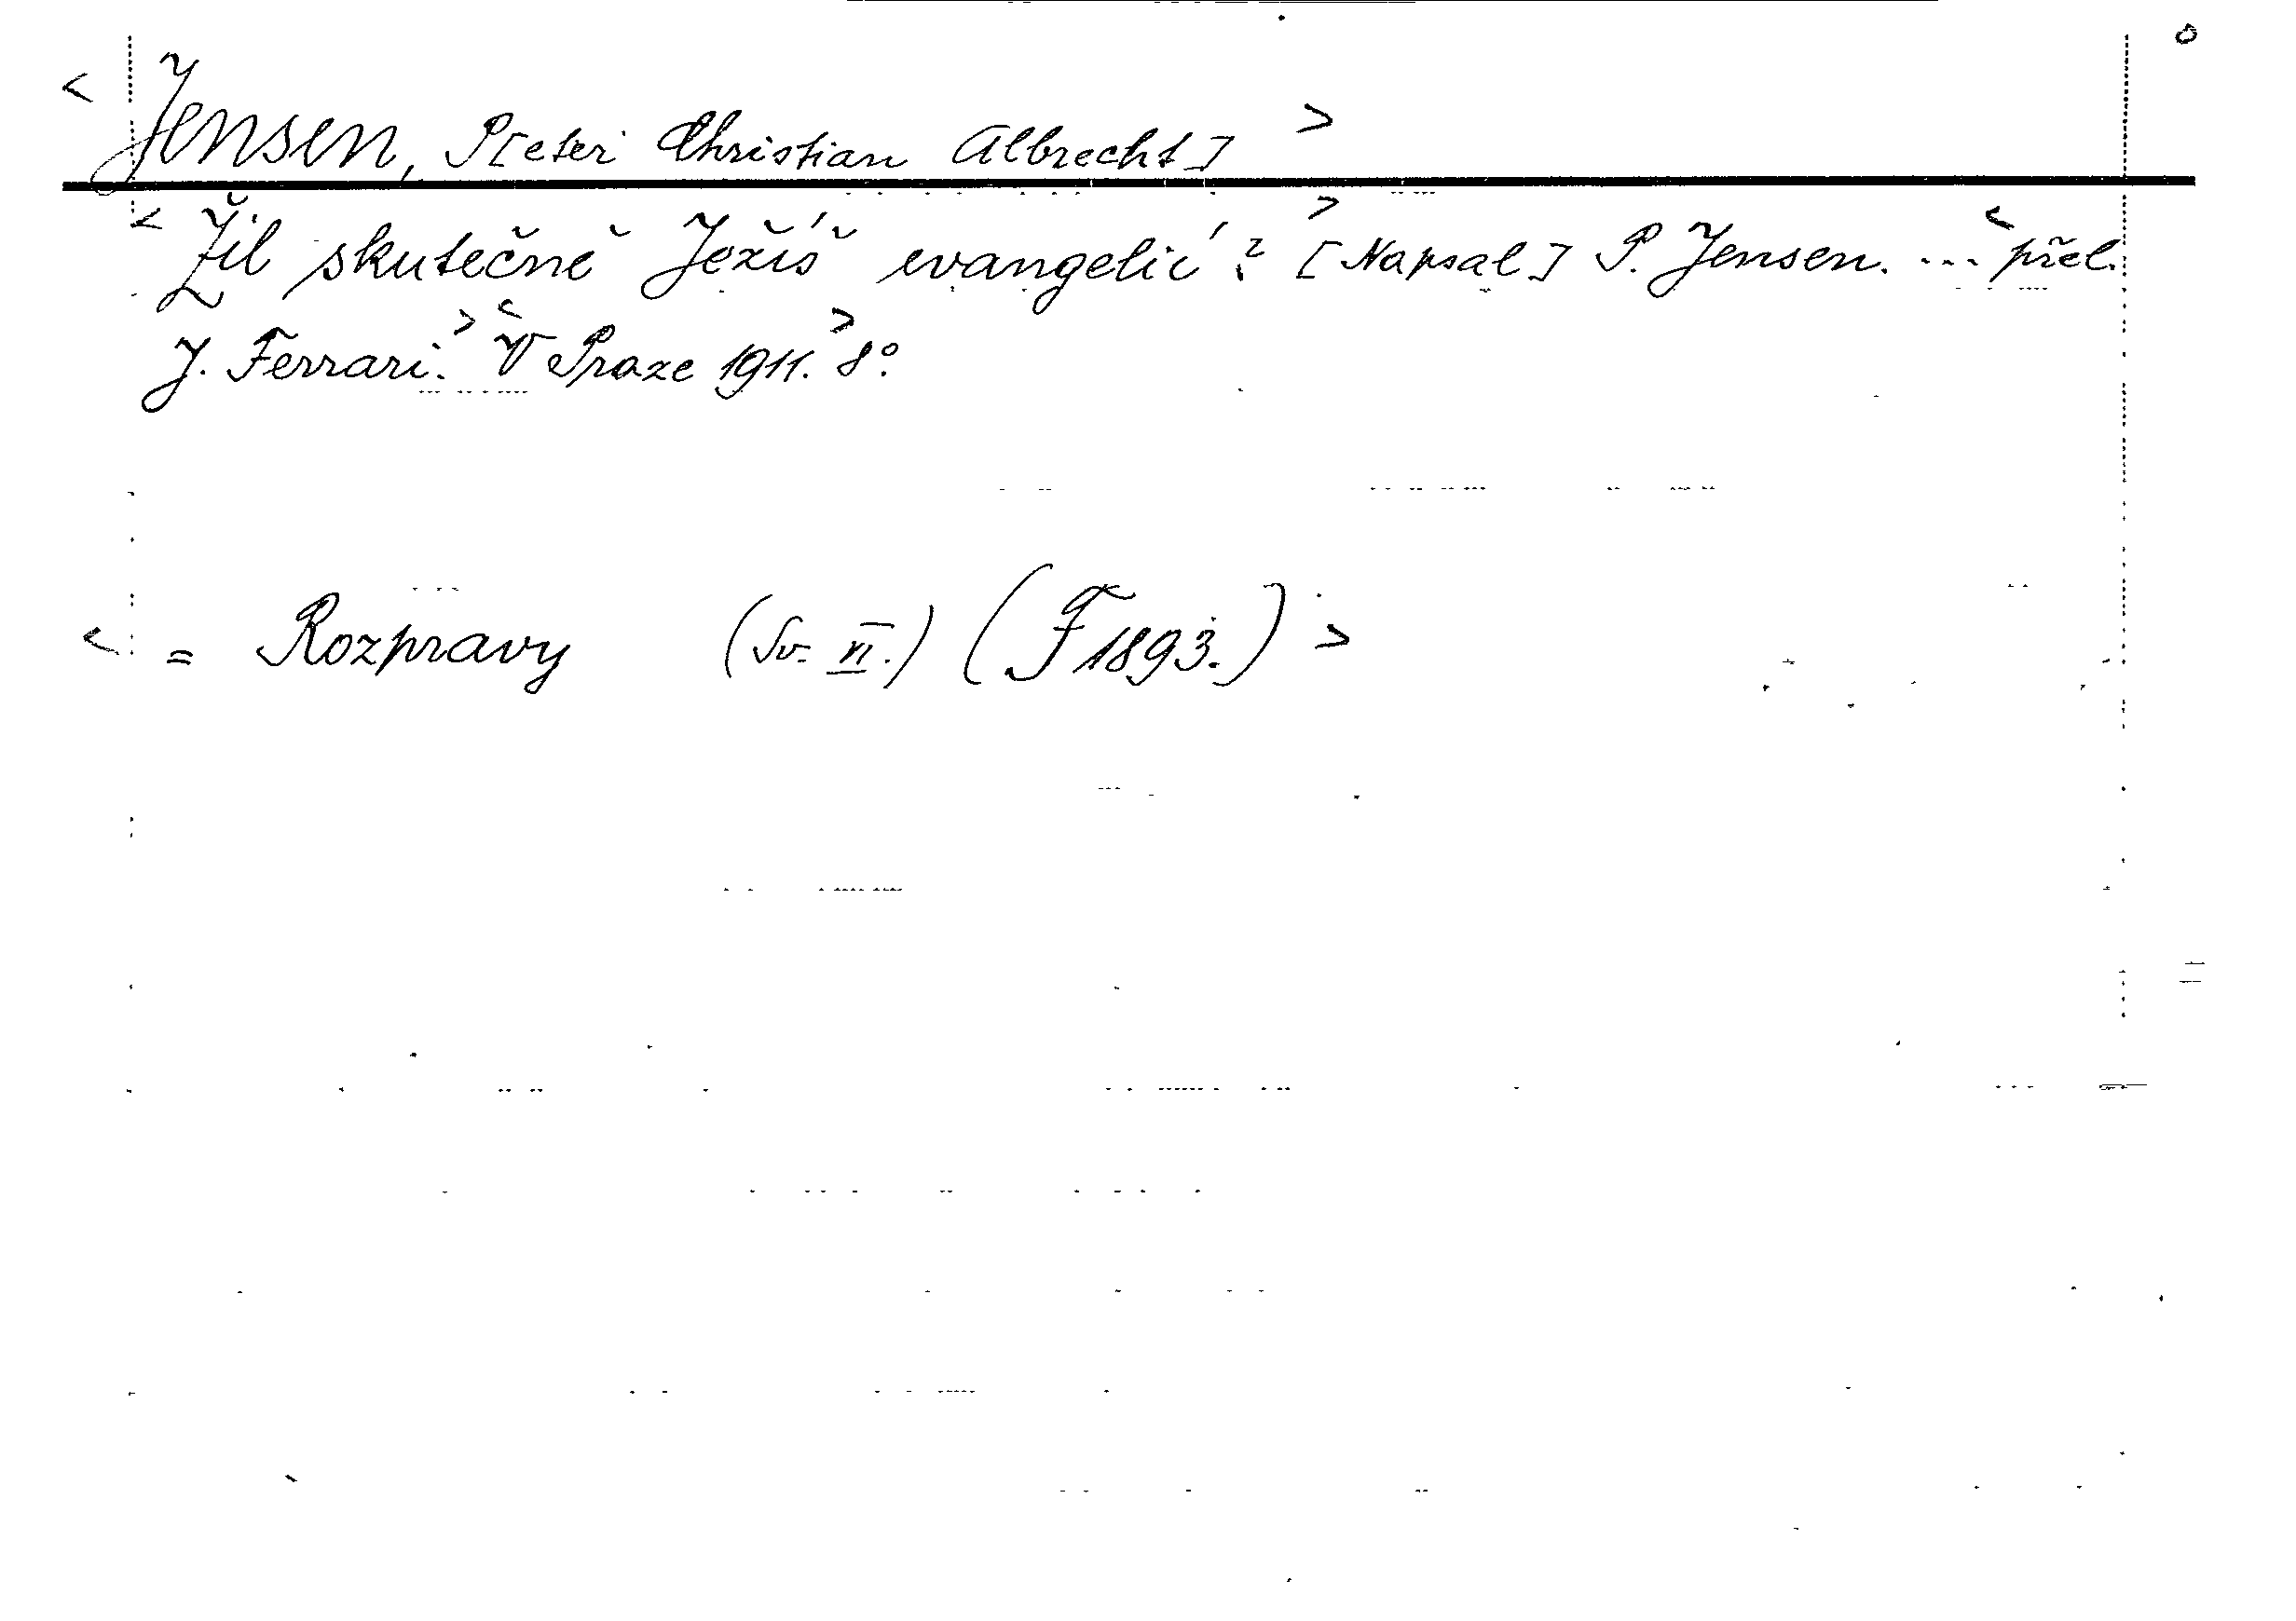 < Jensen, P[eter Christian Albrecht] >
< Žil skutečně Ježíš evangelií? > [Napsal] P. Jensen. ... < přel.
J. Ferrari. > < V Praze 1911. > 8°.
< = Rozpravy (Sv. VI.) (F 1893.) >